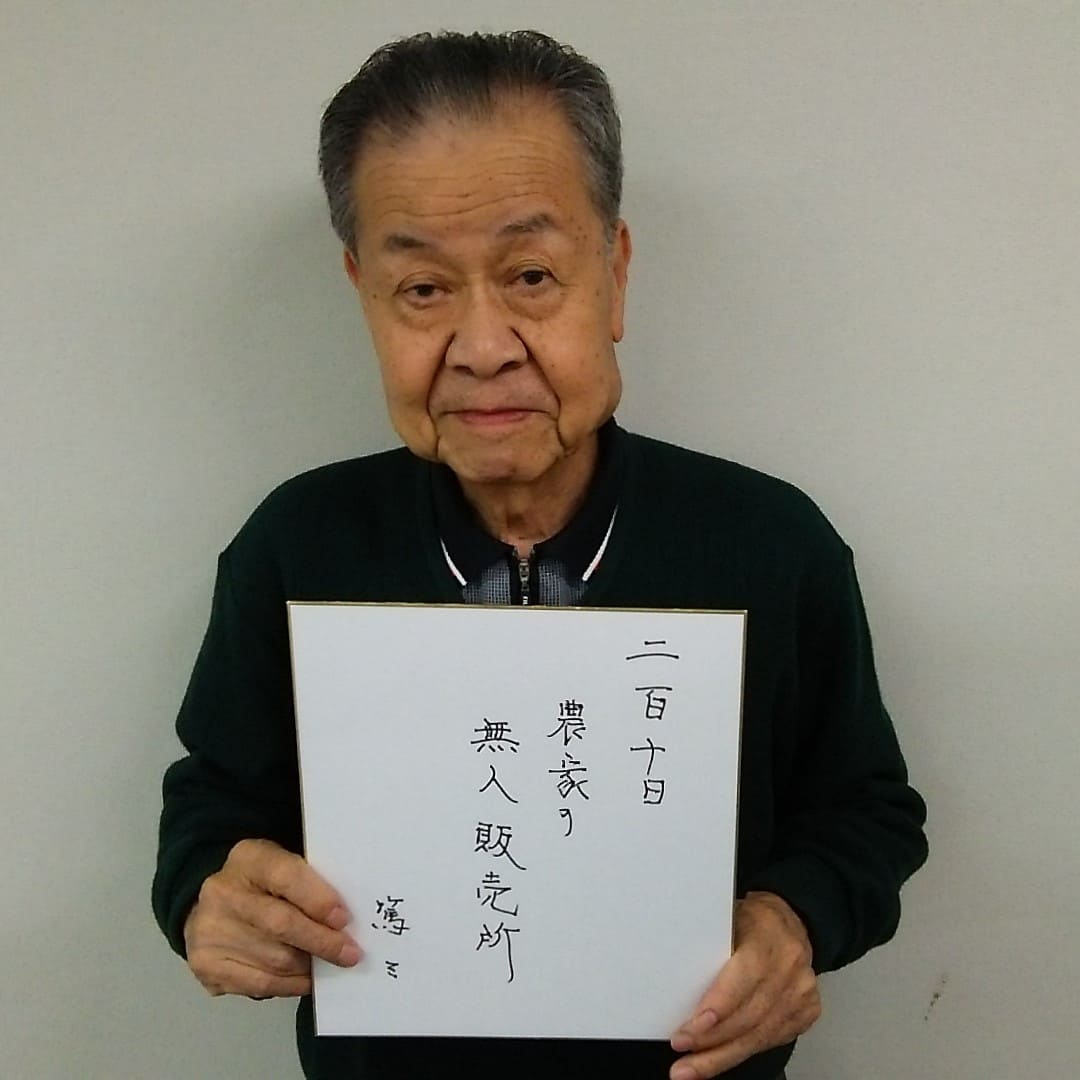 二百十日
農家の
無人販売所
篤三